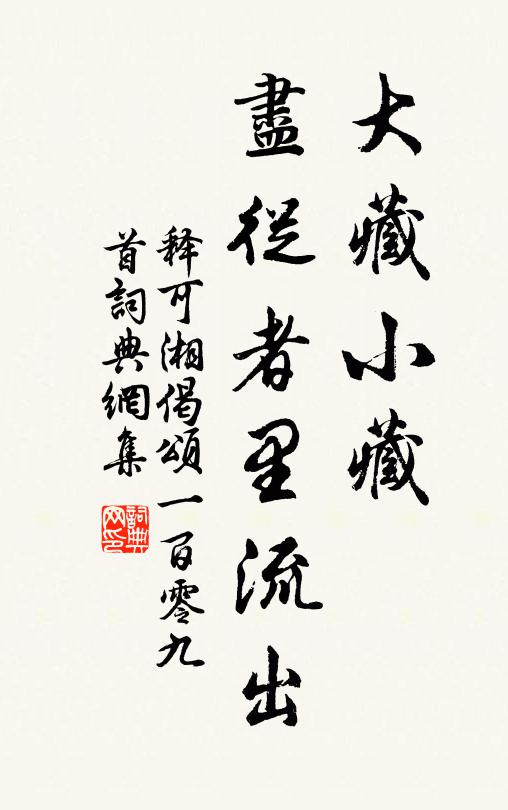 大藏小藏
盡從者里流出
释可湘偈頌一百零九
首詞典網集
詞典网印